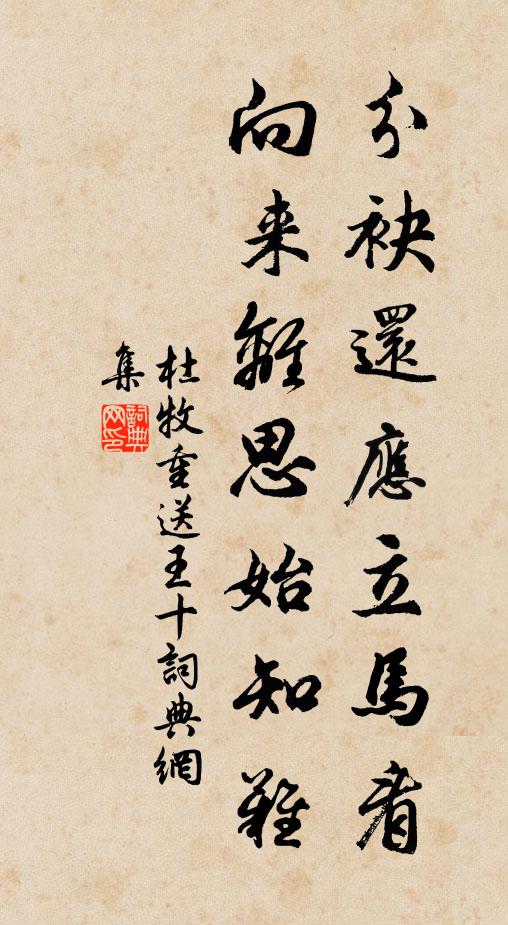 分袂還應立馬看
向来離思始知難
杜牧重送王十詞典網
集
詞典网印